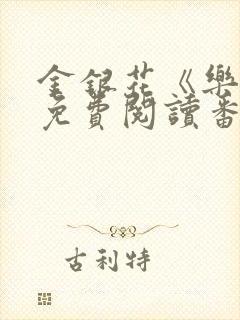 金銀花《樂
免費閱讀番
古利特